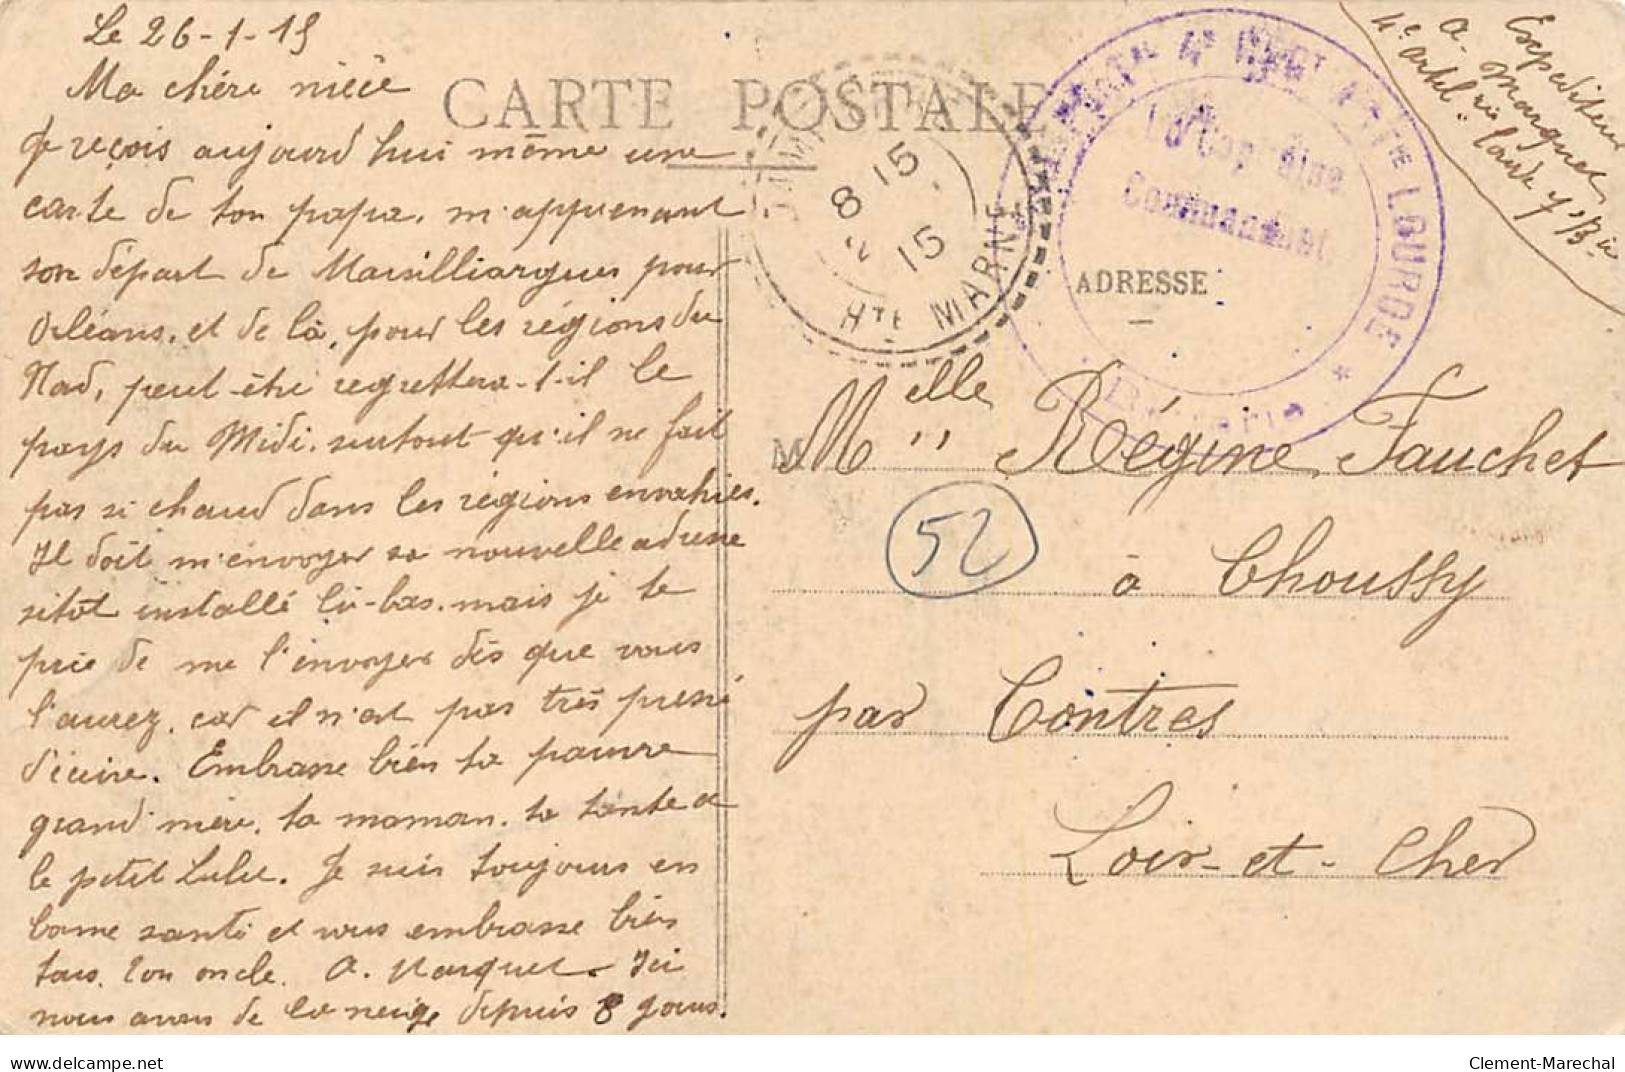 Le 26-1-15
Ma chère nièce
Je reçois aujourd'hui même une
carte de ton papa, m'apprenant
son départ de Marsilliargues pour
Orléans, et de là, pour les régions du
Nord, peut-être regrettera-t-il le
pays du Midi, surtout qu'il ne fait
pas si chaud dans les régions envahies.
Il doit m'envoyer sa nouvelle adresse
sitôt installé là-bas, mais je te
prie de me l'envoyer dès que vous
l'aurez, car il n'est pas très pressé
d'écrire. Embrasse bien ta pauvre
grand'mère, ta maman, ta tante et
le petit Lulu. Je suis toujours en
bonne santé et vous embrasse bien
tous. Ton oncle. A. Marquet. Ici
nous avons de la neige depuis 8 jours.
CARTE POSTALE
8 15
2 15
HTE MARNE
4e LOURDE
Le Capitaine
Commandant
Expediteur
A. Marquet
4e artil.rie lourde 7e Bie
ADRESSE
M
Melle Régine Fauchet
52
à Choussy
par Contres
Loir-et-Cher
www.delcampe.net
Clement-Marechal